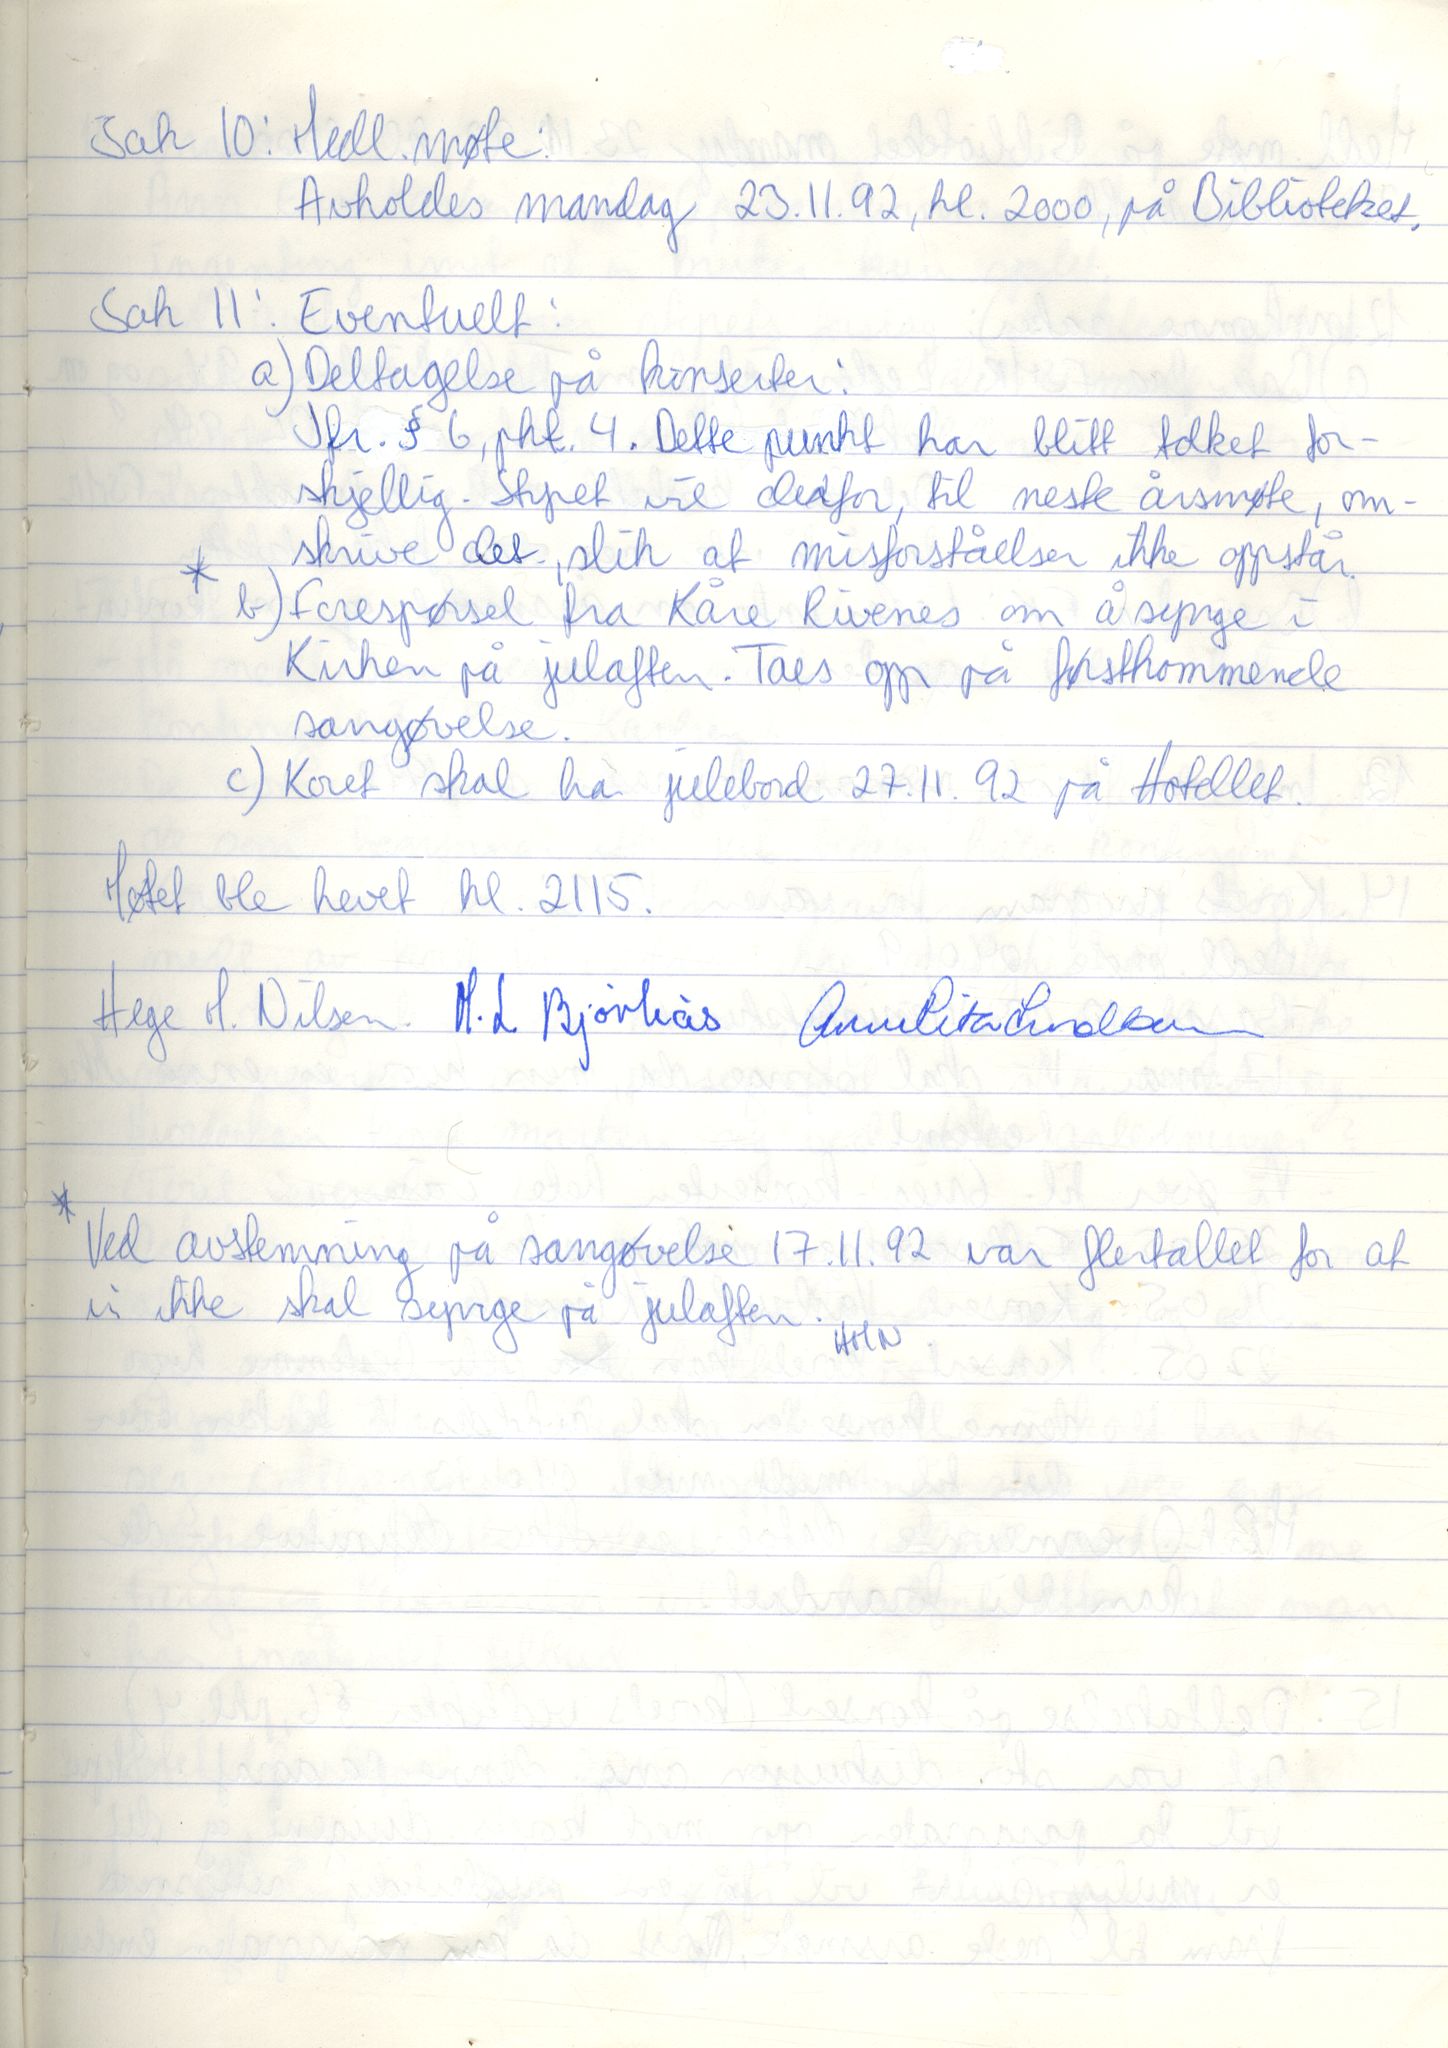 Sak 10: Medl.møte:
Avholdes mandag 23.11.92, kl. 2000, på Biblioteket.
Sak 11: Eventuelt:
a) Deltagelse på konserter:
Jfr. § 6, pkt. 4. Dette punkt har blitt tolket for-
skjellig. Styret vil derfor, til neste årsmøte, om-
skrive det, slik at misforståelser ikke oppstår.
*
b) Forespørsel fra Kåre Rivenes om å synge i
Kirken på julaften. Taes opp på førstkommende
sangøvelse.
c) Koret skal ha julebord 27.11.92 på Hotellet.
Møtet ble hevet kl. 2115.
Hege M. Nilsen. M.L Bjørkås Anne Rita Lindbar
*
Ved avstemning på sangøvelse 17.11.92 var flertallet for at
vi ikke skal synge på julaften.
HMN.